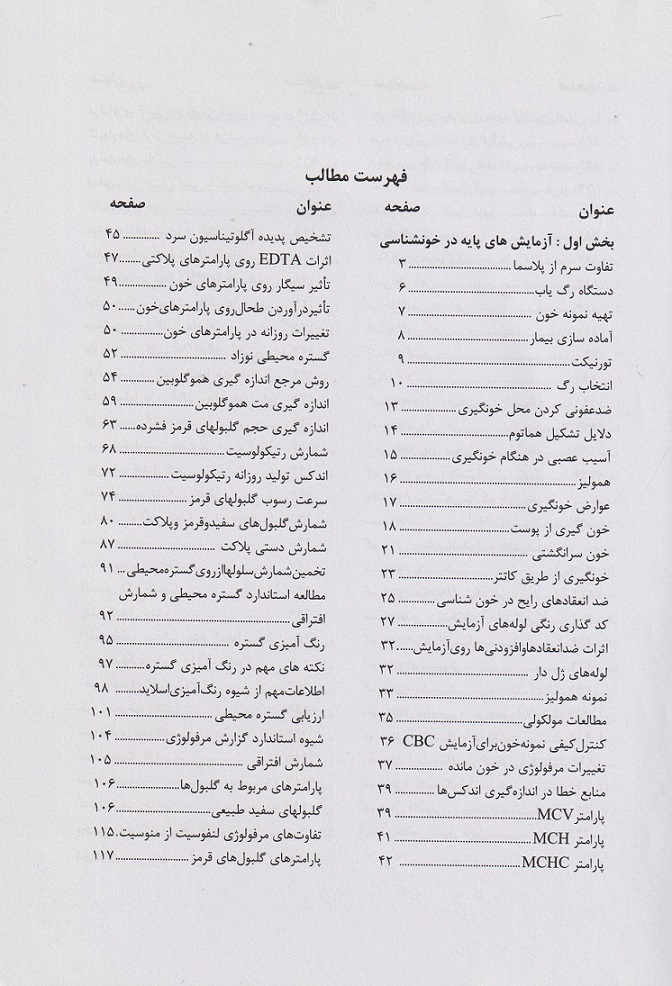 فهرست مطالب
عنوان صفحه
بخش اول : آزمایش های پایه در خونشناسی
تفاوت سرم از پلاسما ................ ۳
دستگاه رگ یاب ................ ۶
تهیه نمونه خون ................ ۷
آماده سازی بیمار ................ ۸
تورنیکت ................ ۹
انتخاب رگ ................ ۱۰
ضدعفونی کردن محل خونگیری ................ ۱۳
دلایل تشکیل هماتوم ................ ۱۴
آسیب عصبی در هنگام خونگیری ................ ۱۵
همولیز ................ ۱۶
عوارض خونگیری ................ ۱۷
خون گیری از پوست ................ ۱۸
خون سرانگشتی ................ ۲۱
خونگیری از طریق کاتتر ................ ۲۳
ضد انعقادهای رایج در خون شناسی ................ ۲۵
کد گذاری رنگی لوله‌های آزمایش ................ ۲۷
اثرات ضدانعقادهاوافزودنی‌ها روی‌آزمایش ...... ۳۲
لوله‌های ژل دار ................ ۳۲
نمونه همولیز ................ ۳۳
مطالعات مولکولی ................ ۳۵
کنترل‌کیفی نمونه‌خون‌برای‌آزمایش CBC ۳۶
تغییرات مرفولوژی در خون مانده ................ ۳۷
منابع خطا در اندازه‌گیری اندکس‌ها ................ ۳۹
پارامترMCV ................ ۳۹
پارامتر MCH ................ ۴۱
پارامتر MCHC ................ ۴۲
عنوان صفحه
تشخیص پدیده آگلوتیناسیون سرد ............. ۴۵
اثرات EDTA روی پارامترهای پلاکتی ....... ۴۷
تأثیر سیگار روی پارامترهای خون ............. ۴۹
تأثیردرآوردن طحال‌روی پارامترهای‌خون ..... ۵۰
تغییرات روزانه در پارامترهای خون ............. ۵۰
گستره محیطی نوزاد ................ ۵۲
روش مرجع اندازه گیری هموگلوبین .......... ۵۴
اندازه گیری مت هموگلوبین ................ ۵۹
اندازه گیری حجم گلبولهای قرمز فشرده ..... ۶۳
شمارش رتیکولوسیت ................ ۶۸
اندکس تولید روزانه رتیکولوسیت ................ ۷۲
سرعت رسوب گلبولهای قرمز ................ ۷۴
شمارش‌گلبول‌های سفیدوقرمز وپلاکت ........ ۸۰
شمارش دستی پلاکت ................ ۸۷
تخمین‌شمارش‌سلولهاازروی‌گستره‌محیطی ... ۹۱
مطالعه استاندارد گستره محیطی و شمارش
افتراقی ................ ۹۲
رنگ آمیزی گستره ................ ۹۵
نکته های مهم در رنگ آمیزی گستره .......... ۹۷
اطلاعات‌مهم از شیوه رنگ‌آمیزی‌اسلاید ....... ۹۸
ارزیابی گستره محیطی ................ ۱۰۱
شیوه استاندارد گزارش مرفولوژی ................ ۱۰۴
شمارش افتراقی ................ ۱۰۵
پارامترهای مربوط به گلبول‌ها ................ ۱۰۶
گلبولهای سفید طبیعی ................ ۱۰۶
تفاوت‌های مرفولوژی لنفوسیت از منوسیت . ۱۱۵
پارامترهای گلبول‌های قرمز ................ ۱۱۷